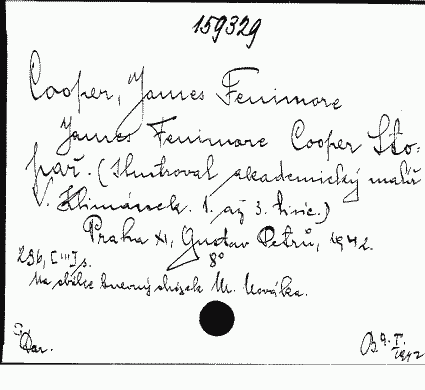 159329
Cooper, James Fenimore
James Fenimore Cooper Sto-
pař. (Ilustroval akademický malíř
V. Klimánek. 1. až 3. tisíc.)
Praha XI, Gustav Petrů, 1942.
296, [III] s. 8°
Na obálce barevný obrázek M. Nováka.
Dar.
1942